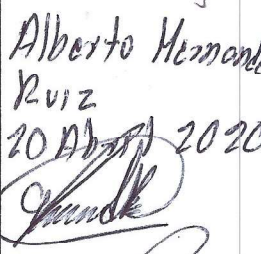 Alberto Hernande
Ruiz
20 Abril 2020